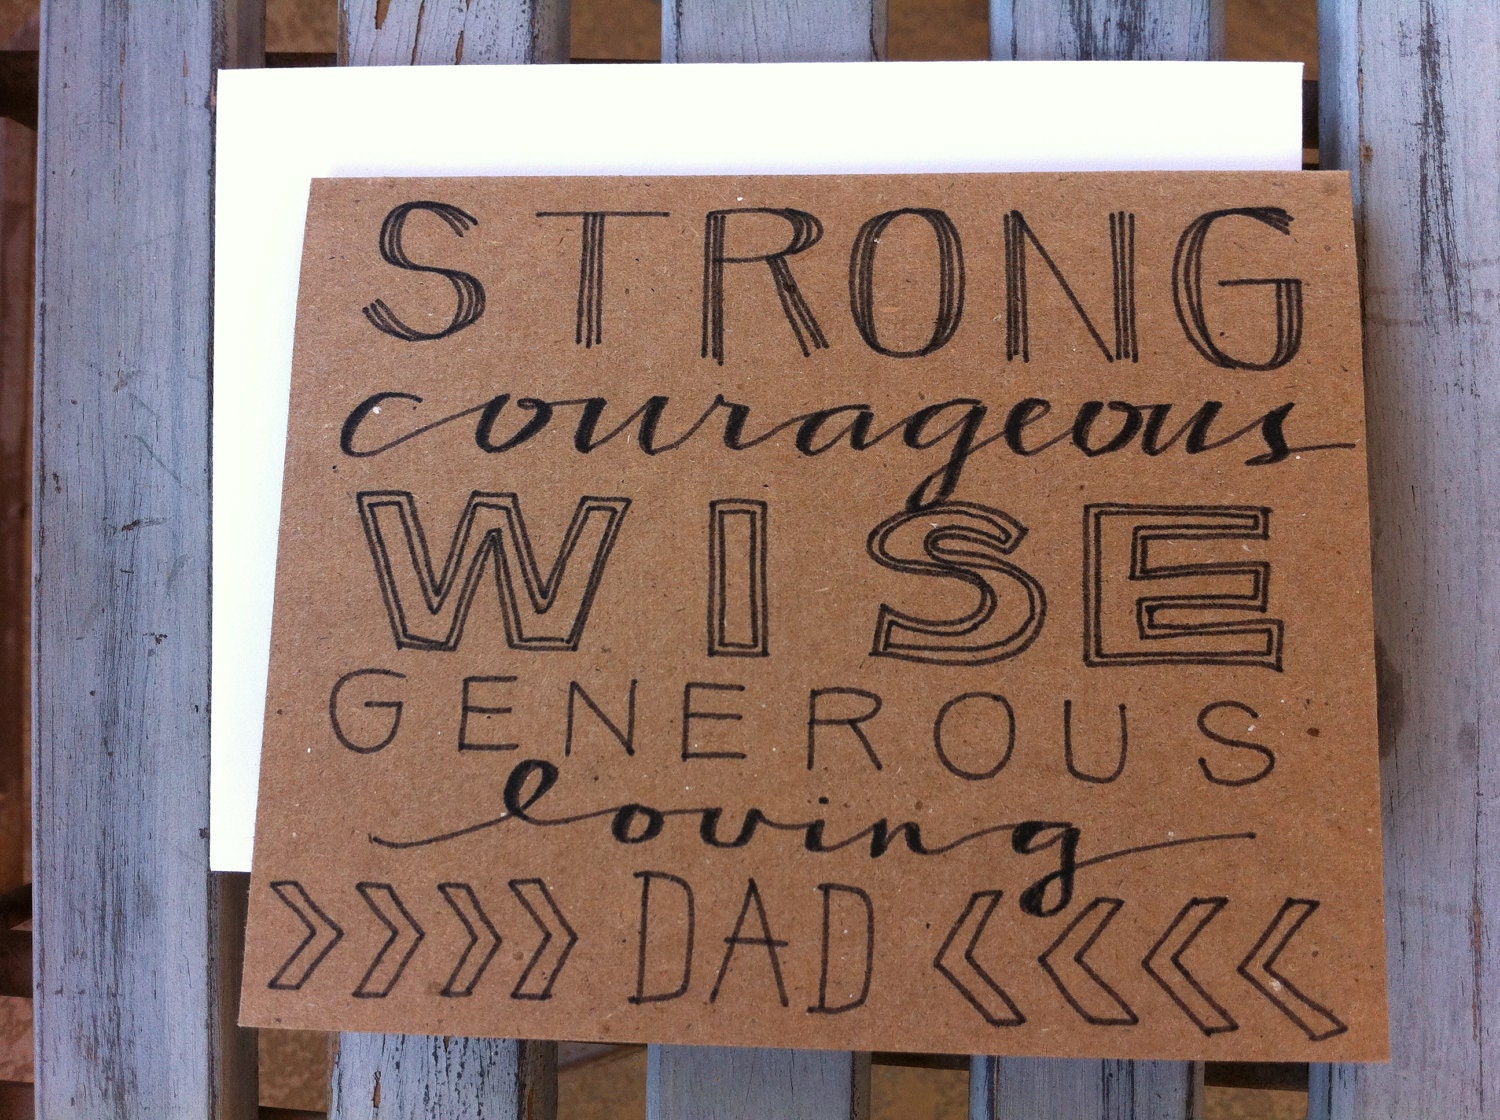 STRONG
courageous
WISE
GENEROUS
loving
DAD